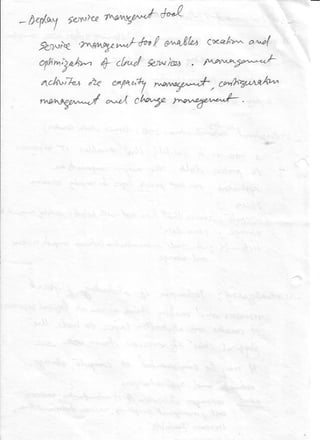 - Deploy service management tool
Service management tool enables creation and
optimization of cloud services. Management
activities like capacity management, configuration
management and change management.